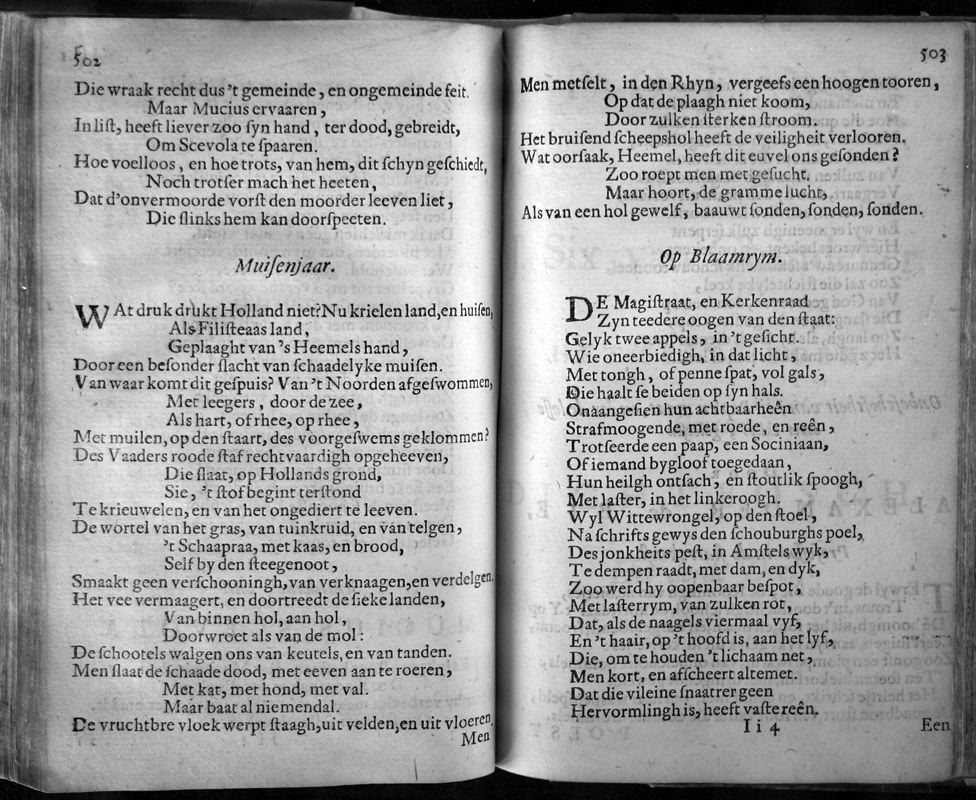 502
Die wraak recht dus 't gemeinde, en ongemeinde feit.
Maar Mucius ervaaren,
In liſt, heeft liever zoo ſyn hand, ter dood, gebreidt,
Om Scevola te ſpaaren.
Hoe voelloos, en hoe trots, van hem, dit ſchyn geſchiedt,
Noch trotſer mach het heeten,
Dat d'onvermoorde vorſt den moorder leeven liet,
Die ſlinks hem kan doorſpeeten.
Muiſenjaar.
WAt druk drukt Holland niet? Nu krielen land, en huiſen,
Als Filiſteaas land,
Geplaaght van 's Heemels hand,
Door een beſonder ſlacht van ſchaadelyke muiſen.
Van waar komt dit geſpuis? Van 't Noorden afgeſwommen,
Met leegers, door de zee,
Als hart, of rhee, op rhee,
Met muilen, op den ſtaart, des voorgeſwems geklommen?
Des Vaaders roode ſtaf rechtvaardigh opgeheeven,
Die ſlaat, op Hollands grond,
Sie, 't ſtof begint terſtond
Te krieuwelen, en van het ongediert te leeven.
De wortel van het gras, van tuinkruid, en van telgen,
't Schaapraa, met kaas, en brood,
Self by den ſteegenoot,
Smaakt geen verſchooningh, van verknaagen, en verdelgen.
Het vee vermaagert, en doortreedt de ſieke landen,
Van binnen hol, aan hol,
Doorwroet als van de mol:
De ſchootels walgen ons van keutels, en van tanden.
Men ſlaat de ſchaade dood, met eeven aan te roeren,
Met kat, met hond, met val.
Maar baat al niemendal.
De vruchtbre vloek werpt ſtaagh, uit velden, en uit vloeren.
Men
503
Men metſelt, in den Rhyn, vergeefs een hoogen tooren,
Op dat de plaagh niet koom,
Door zulken ſterken ſtroom.
Het bruiſend ſcheepshol heeft de veiligheit verlooren.
Wat oorſaak, Heemel, heeft dit euvel ons geſonden?
Zoo roept men met geſucht.
Maar hoort, de gramme lucht,
Als van een hol gewelf, baauwt ſonden, ſonden, ſonden.
Op Blaamrym.
DE Magiſtraat, en Kerkenraad
Zyn teedere oogen van den ſtaat:
Gelyk twee appels, in 't geſicht.
Wie oneerbiedigh, in dat licht,
Met tongh, of penne ſpat, vol gals,
Die haalt ſe beiden op ſyn hals.
Onaangeſien hun achtbaarheên
Strafmoogende, met roede, en reên,
Trotſeerde een paap, een Sociniaan,
Of iemand bygloof toegedaan,
Hun heilgh ontſach, en ſtoutlik ſpoogh,
Met laſter, in het linkeroogh.
Wyl Wittewrongel, op den ſtoel,
Na ſchrifts gewys den ſchouburghs poel,
Des jonkheits peſt, in Amſtels wyk,
Te dempen raadt, met dam, en dyk,
Zoo werd hy oopenbaar beſpot,
Met laſterrym, van zulken rot,
Dat, als de naagels viermaal vyf,
En 't haair, op 't hoofd is, aan het lyf,
Die, om te houden 't lichaam net,
Men kort, en afſcheert altemet.
Dat die vileine ſnaatrer geen
Hervormlingh is, heeft vaſte reên.
Ii 4
Een